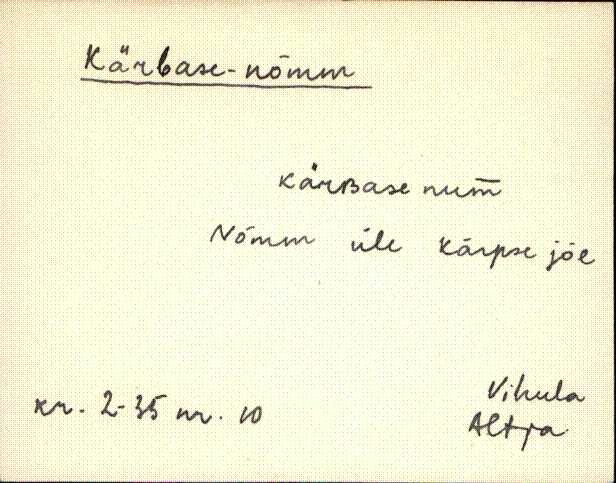 Kärbase-nõmm
kärBase num̅
Nõmm üle kärpse jõe
kr. 2-35 nr. 10
Vihula
Altja